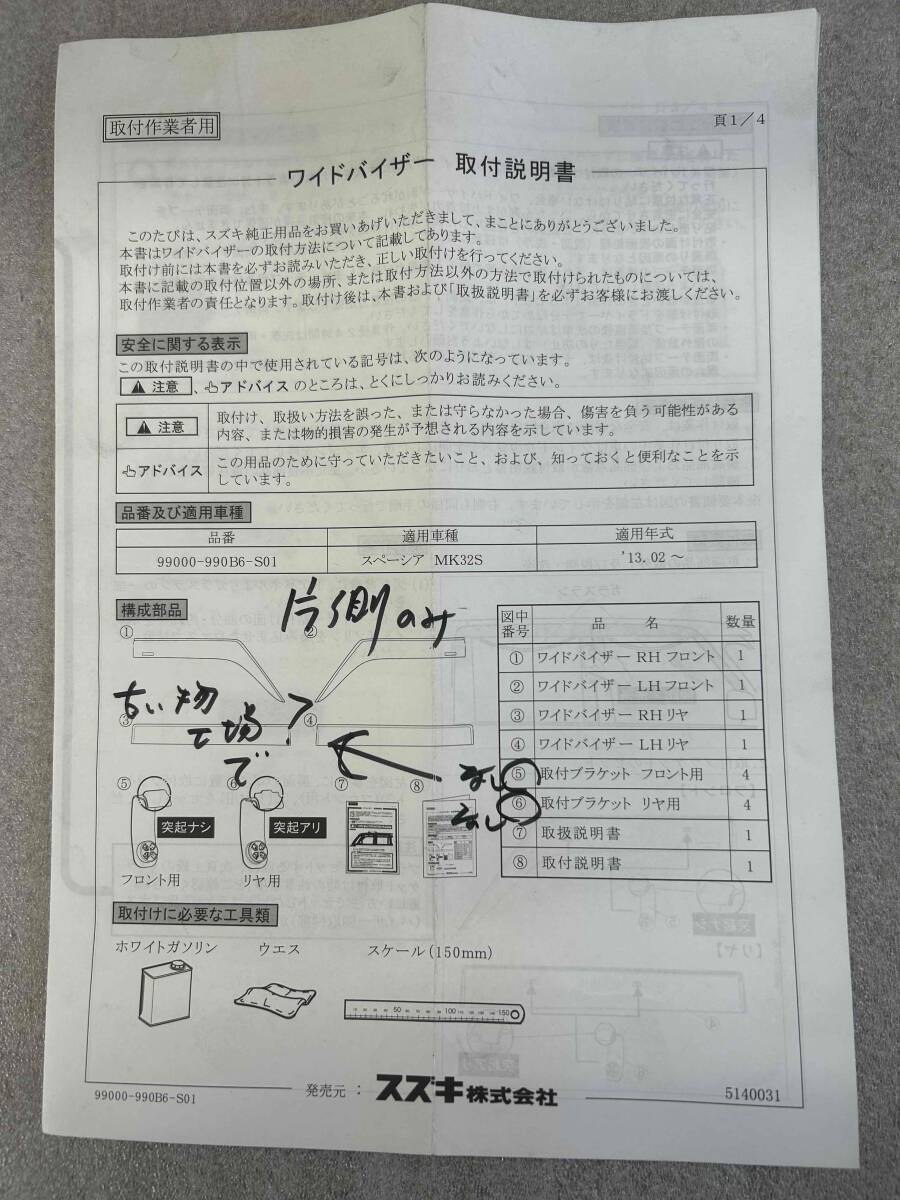 取付作業者用
頁1／4
ワイドバイザー 取付説明書
このたびは、スズキ純正用品をお買いあげいただきまして、まことにありがとうございました。
本書はワイドバイザーの取付方法について記載してあります。
取付け前には本書を必ずお読みいただき、正しい取付けを行ってください。
本書に記載の取付位置以外の場所、または取付方法以外の方法で取付けられたものについては、
取付作業者の責任となります。取付け後は、本書および「取扱説明書」を必ずお客様にお渡しください。
安全に関する表示
この取付説明書の中で使用されている記号は、次のようになっています。
注意、アドバイス のところは、とくにしっかりお読みください。
注意 取付け、取扱い方法を誤った、または守らなかった場合、傷害を負う可能性がある
内容、または物的損害の発生が予想される内容を示しています。
アドバイス この用品のために守っていただきたいこと、および、知っておくと便利なことを示
しています。
品番及び適用車種
品番 適用車種 適用年式
99000-990B6-S01 スペーシア MK32S '13.02 ～
構成部品
片側のみ
① ②
③ ④
古い物
で
⑤ ⑥ ⑦ ⑧
突起ナシ 突起アリ
フロント用 リヤ用
図中番号 品 名 数量
① ワイドバイザー RHフロント 1
② ワイドバイザー LHフロント 1
③ ワイドバイザー RHリヤ 1
④ ワイドバイザー LHリヤ 1
なし ⑤ 取付ブラケット フロント用 4
なし ⑥ 取付ブラケット リヤ用 4
⑦ 取扱説明書 1
⑧ 取付説明書 1
取付けに必要な工具類
ホワイトガソリン ウエス スケール(150mm)
50 100 150
99000-990B6-S01
発売元： スズキ株式会社
5140031